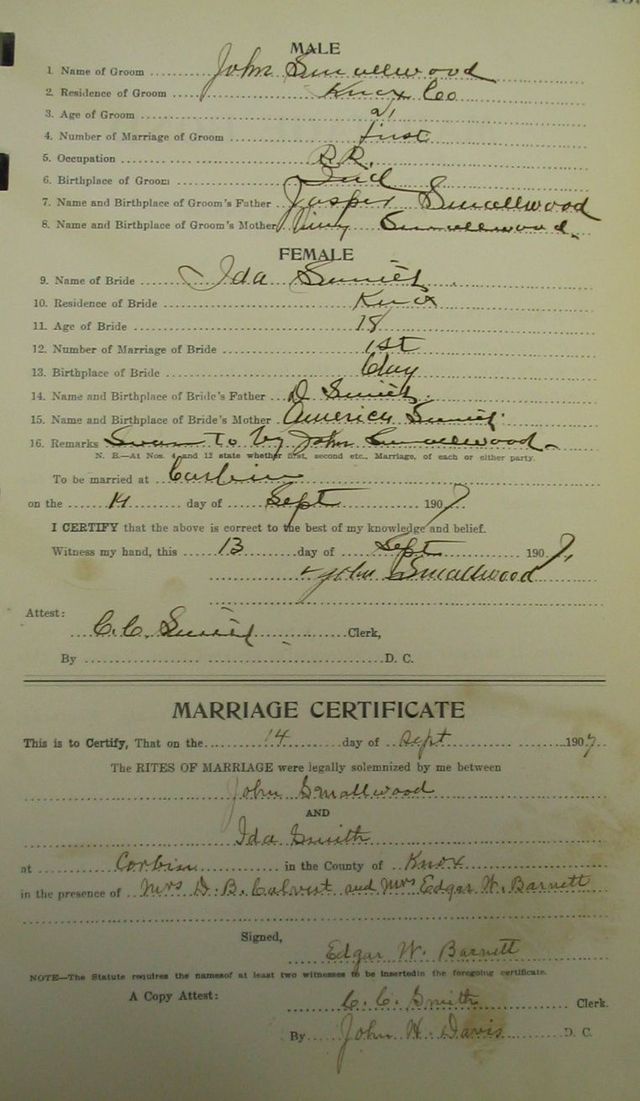 MALE
1. Name of Groom John Smallwood
2. Residence of Groom Knox Co
3. Age of Groom 21
4. Number of Marriage of Groom first
5. Occupation R.R.
6. Birthplace of Groom Ind
7. Name and Birthplace of Groom's Father Jasper Smallwood
8. Name and Birthplace of Groom's Mother Smallwood
FEMALE
9. Name of Bride Ida Smith
10. Residence of Bride Knox
11. Age of Bride 18
12. Number of Marriage of Bride 1st
13. Birthplace of Bride Clay
14. Name and Birthplace of Bride's Father D Smith
15. Name and Birthplace of Bride's Mother America Smith
16. Remarks Sworn to by John Smallwood
N. B.—At Nos. 4 and 12 state whether first, second etc., Marriage, of each or either party.
To be married at Corbin
on the 14 day of Sept 1907
I CERTIFY that the above is correct to the best of my knowledge and belief.
Witness my hand, this 13 day of Sept 1907.
John Smallwood
Attest:
C.C. Smith Clerk,
By D. C.
MARRIAGE CERTIFICATE
This is to Certify, That on the 14 day of Sept 1907
The RITES OF MARRIAGE were legally solemnized by me between
John Smallwood
AND
Ida Smith
at Corbin in the County of Knox
in the presence of Mrs D. B. Calvert and Mrs Edgar W. Barnett
Signed,
Edgar W. Barnett
NOTE—The Statute requires the namesof at least two witnesses to be insertedin the foregoing certificate.
A Copy Attest:
C. C. Smith Clerk.
By John H. Davis D. C.